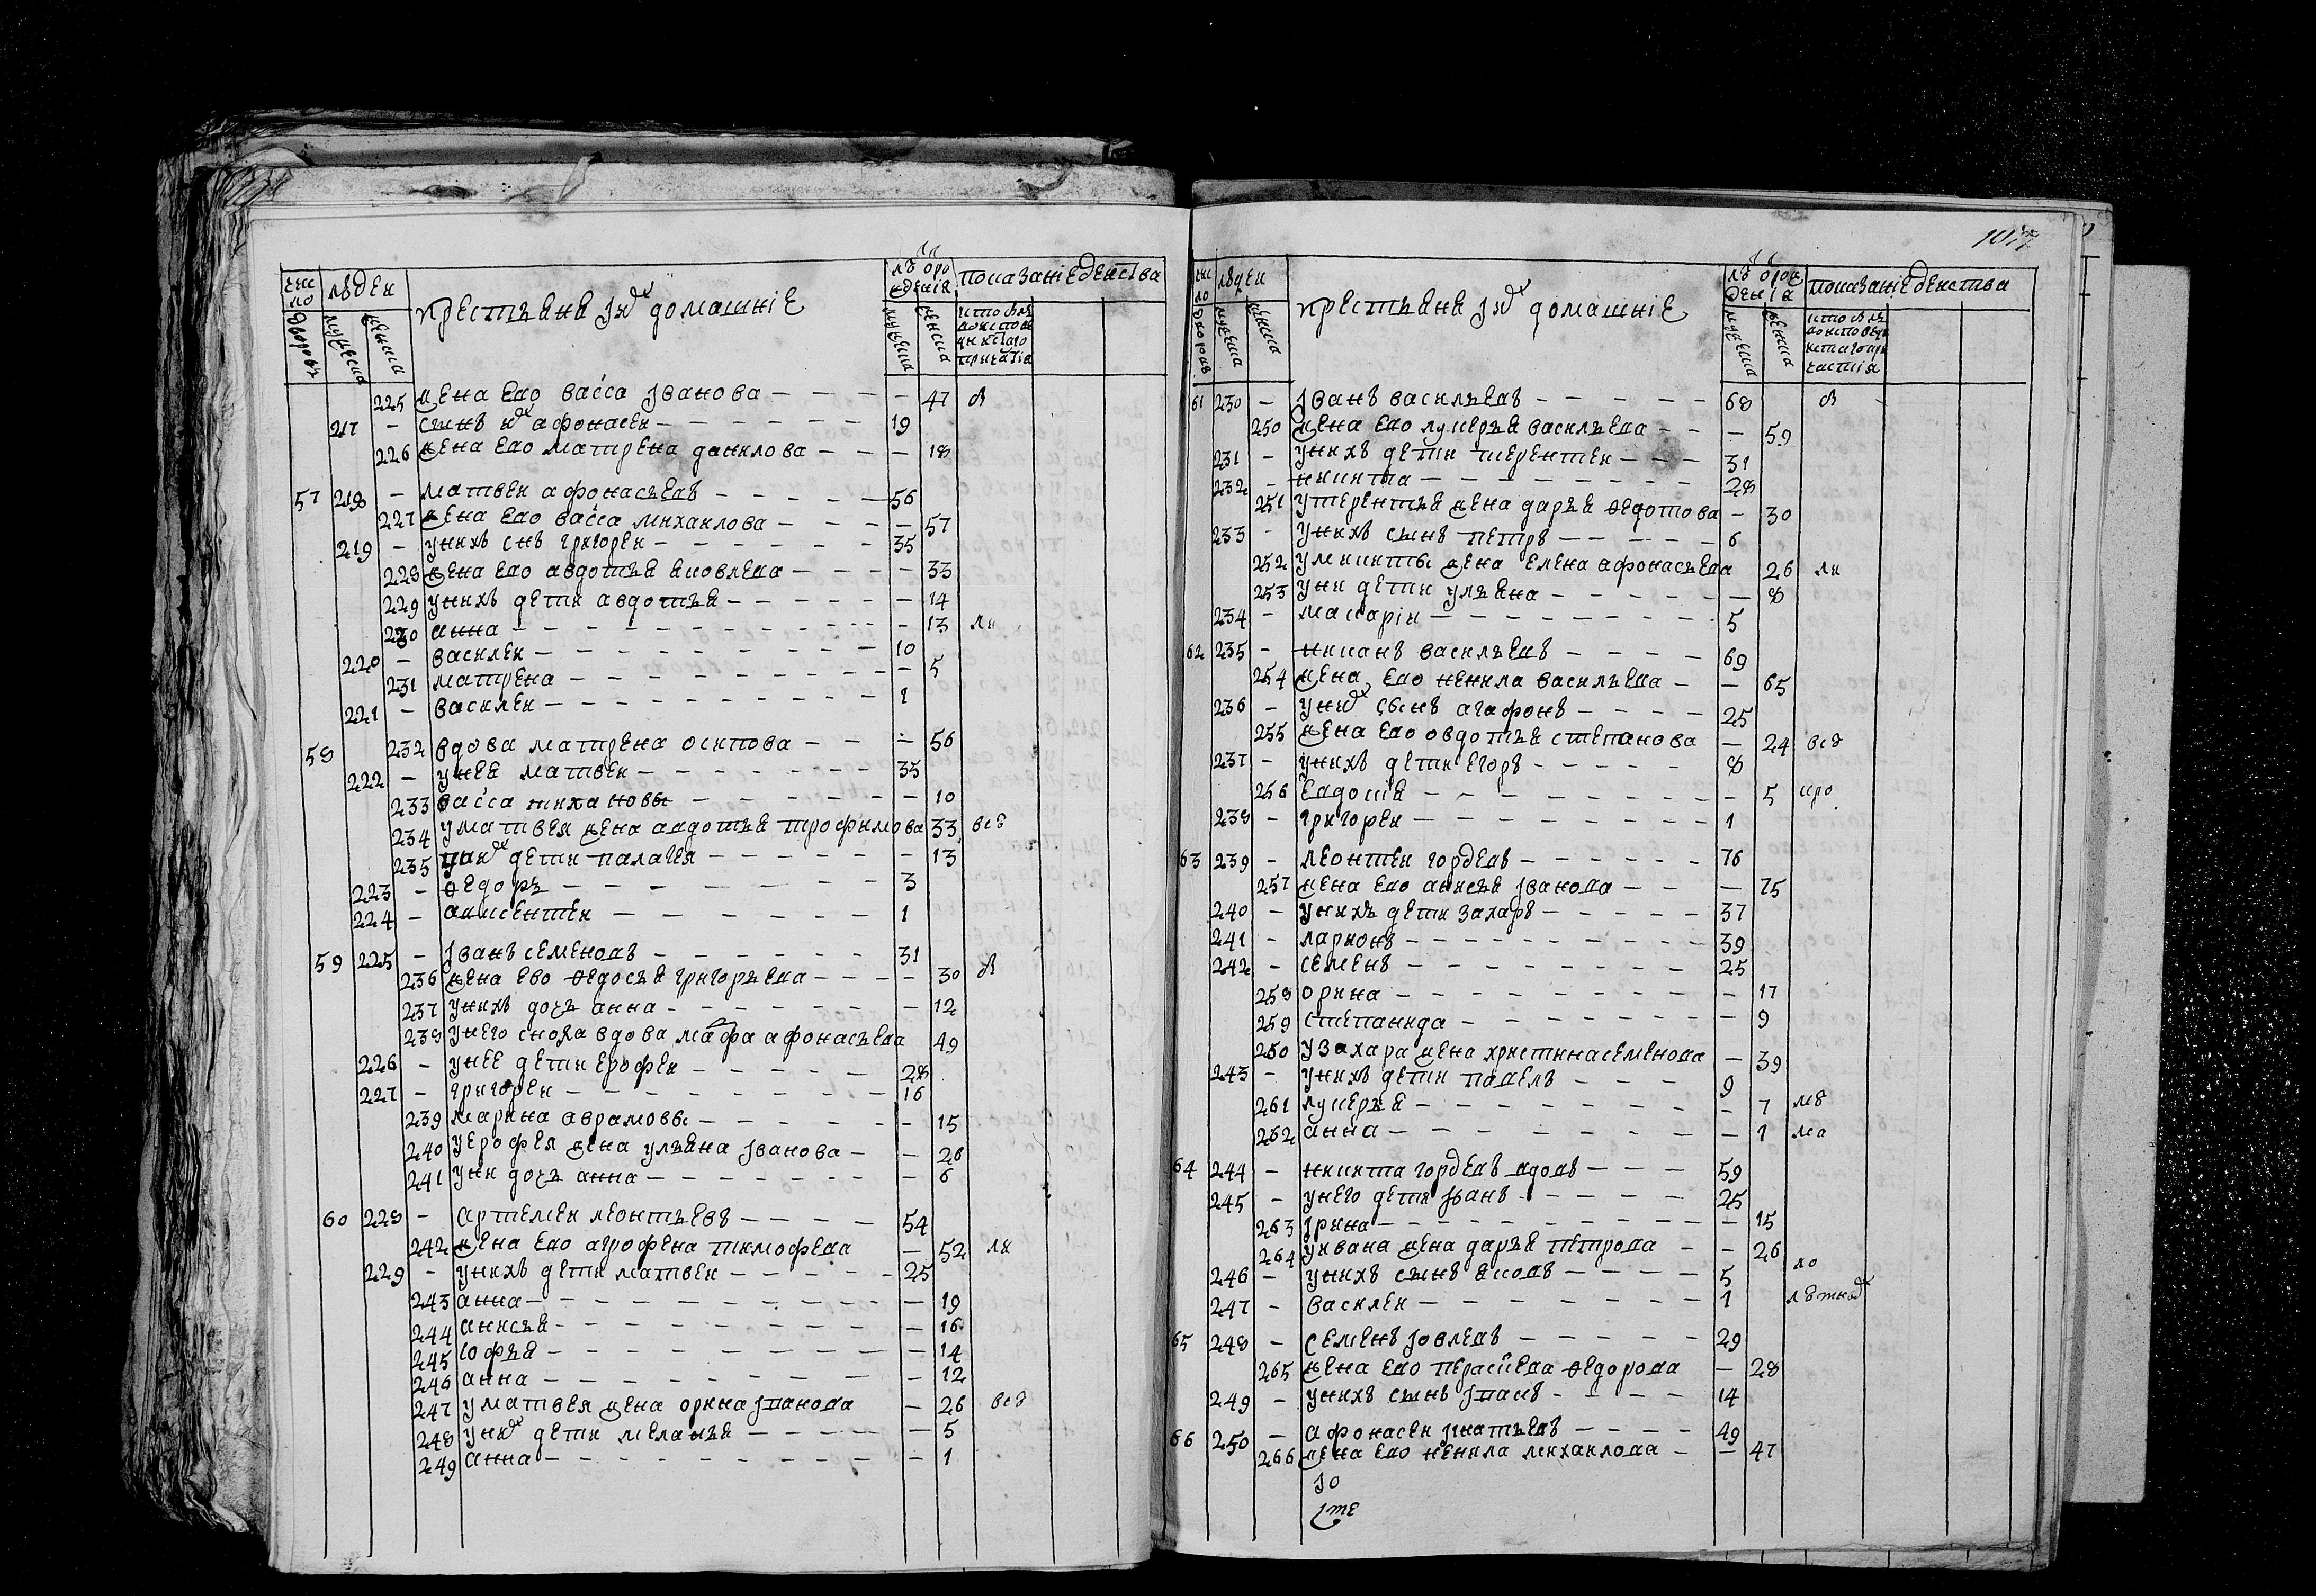 число людей крестьяне и их домашние лѣ от рождения показание действа
дворовъ мужеска женска мужеска женска
225 жена ево васса иванова - 47 в
217 - сынъ их афонасеи - 19
226 жена ево матрена данилова - 18
57 218 - матвеи афонасьевъ - 56
227 жена ево васса михаилова - 57
219 - у нихъ снъ григореи - 35
228 жена ево авдотья яковлева - 33
229 у нихъ дети авдотья - 14
230 анна - 13
220 - василеи - 10
231 матрена - 5
221 - василеи - 1
58 232 вдова матрена осипова - 56
222 - у нея матвеи - 35
233 васса - 10
234 у матвея жена авдотья трофимова 33 всѣ
235 у них дети палагея - 13
223 - ѳедоръ - 3
224 - авксентеи - 1
59 225 - иванъ семеновъ - 31
236 жена ево ѳедосья григорьева - 30 в
237 у нихъ дочь анна - 12
238 у него сноха вдова марфа афонасьева 49
226 - у нее дети ерофеи - 28
227 - григореи - 16
239 марина аврамовы - 15
240 у ерофея жена ульяна иванова - 26
241 у ни дочь анна - 6
60 228 - артемеи леонтьевъ - 54
242 жена ево агрофена тимофева - 52
229 - у нихъ дети матвеи - 25
243 анна - 19
244 анисья - 16
245 софья - 14
246 анна - 12
247 у матвея жена орина ипанова - 26 всѣ
248 у них дети меланья - 5
249 анна - 1
крестьяне и их домашние показание действа
61 230 - иванъ васильевъ - 68 в
250 жена ево лукерья васильева - 59
231 - у нихъ дети терентеи - 31
232 - никита - 28
251 у терентья жена дарья ѳедотова - 30
233 - у нихъ сынъ петръ - 6
252 у никиты жена елена афонасьева 26
253 у ни дети ульяна - 8
234 - макарiи - 5
62 235 - никанъ васильевъ - 69
254 жена ево ненила васильева - 65
236 - у них сынъ агафонъ - 25
255 жена ево овдотья степанова - 24 всѣ
237 - у нихъ дети егоръ - 8
256 евдокия - 5
238 - григореи - 1
63 239 - леонтеи гордевъ - 76
257 жена ево анисья иванова - 75
240 - у нихъ дети захаръ - 37
241 - ларионъ - 39
242 - семенъ - 25
258 орина - 17
259 степанида - 9
260 у захара жена христина семенова - 39
243 - у нихъ дети павелъ - 9
261 лукерья - 7
262 анна - 1
64 244 - никита гордевъ вдовъ - 59
245 - у него дети иванъ - 25
263 ирина - 15
264 у ивана жена дарья петрова - 26
246 - у нихъ сынъ яковъ - 5
247 - василеи - 1
65 248 - семенъ иовлевъ - 29
265 жена ево парасковева ѳедорова - 28
249 - у нихъ сынъ ипатъ - 14
66 250 - афонасеи игнатьевъ - 49
266 жена ево ненила михаилова - 47